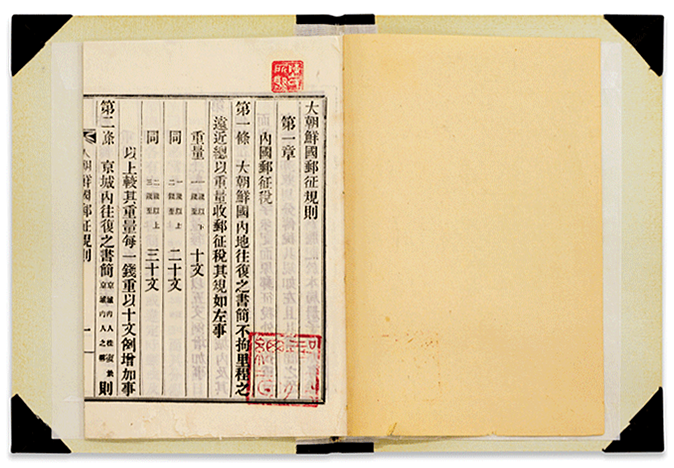 大朝鮮國郵征規則
第一章
內國郵征税
第一條 大朝鮮國內地往復之書簡不拘里程之
遠近總以重量收郵征税其規如左事
重量 十文
同 一錢以上二錢至 二十文
同 二錢以上三錢至 三十文
以上較其重量每一錢重以十文例增加事
第二條 京城內往復之書簡 則
大朝鮮國郵征規則 一